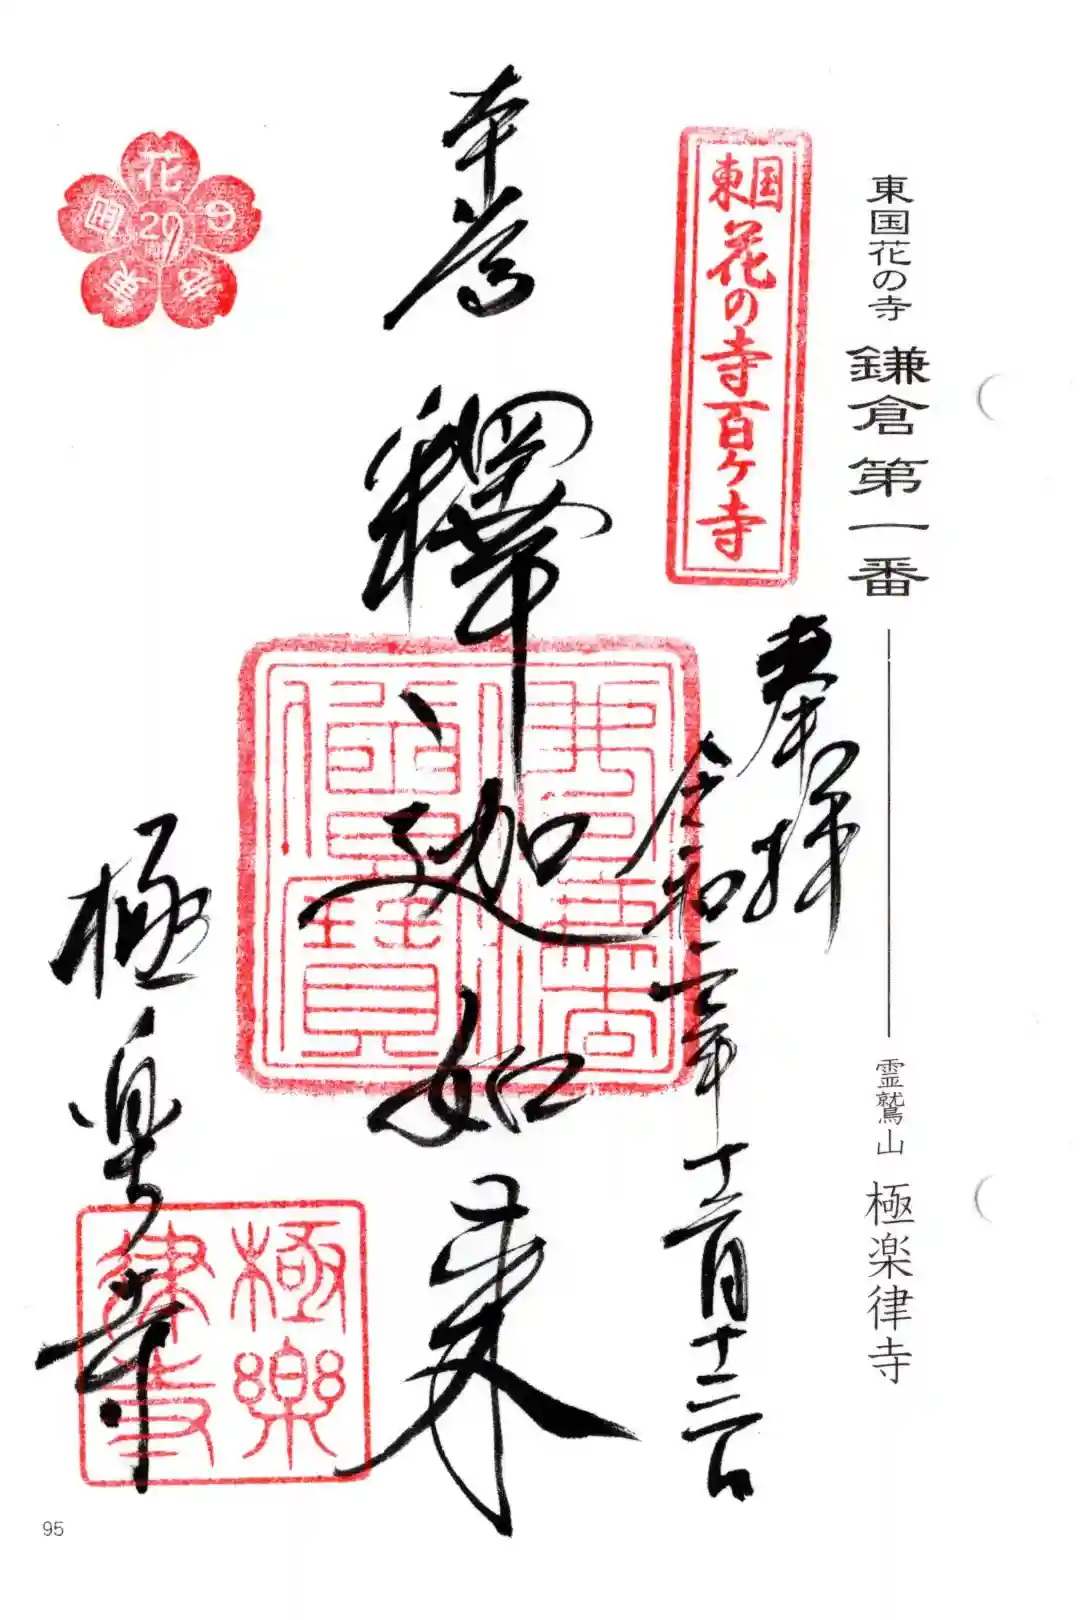 東国花の寺 鎌倉第一番
霊鷲山 極楽律寺
東国
花の寺百ヶ寺
奉拝
令和二年十二月十三日
本尊
釋迦如来
極楽寺
極樂
律寺
僧寶
花の寺
東国
20
95